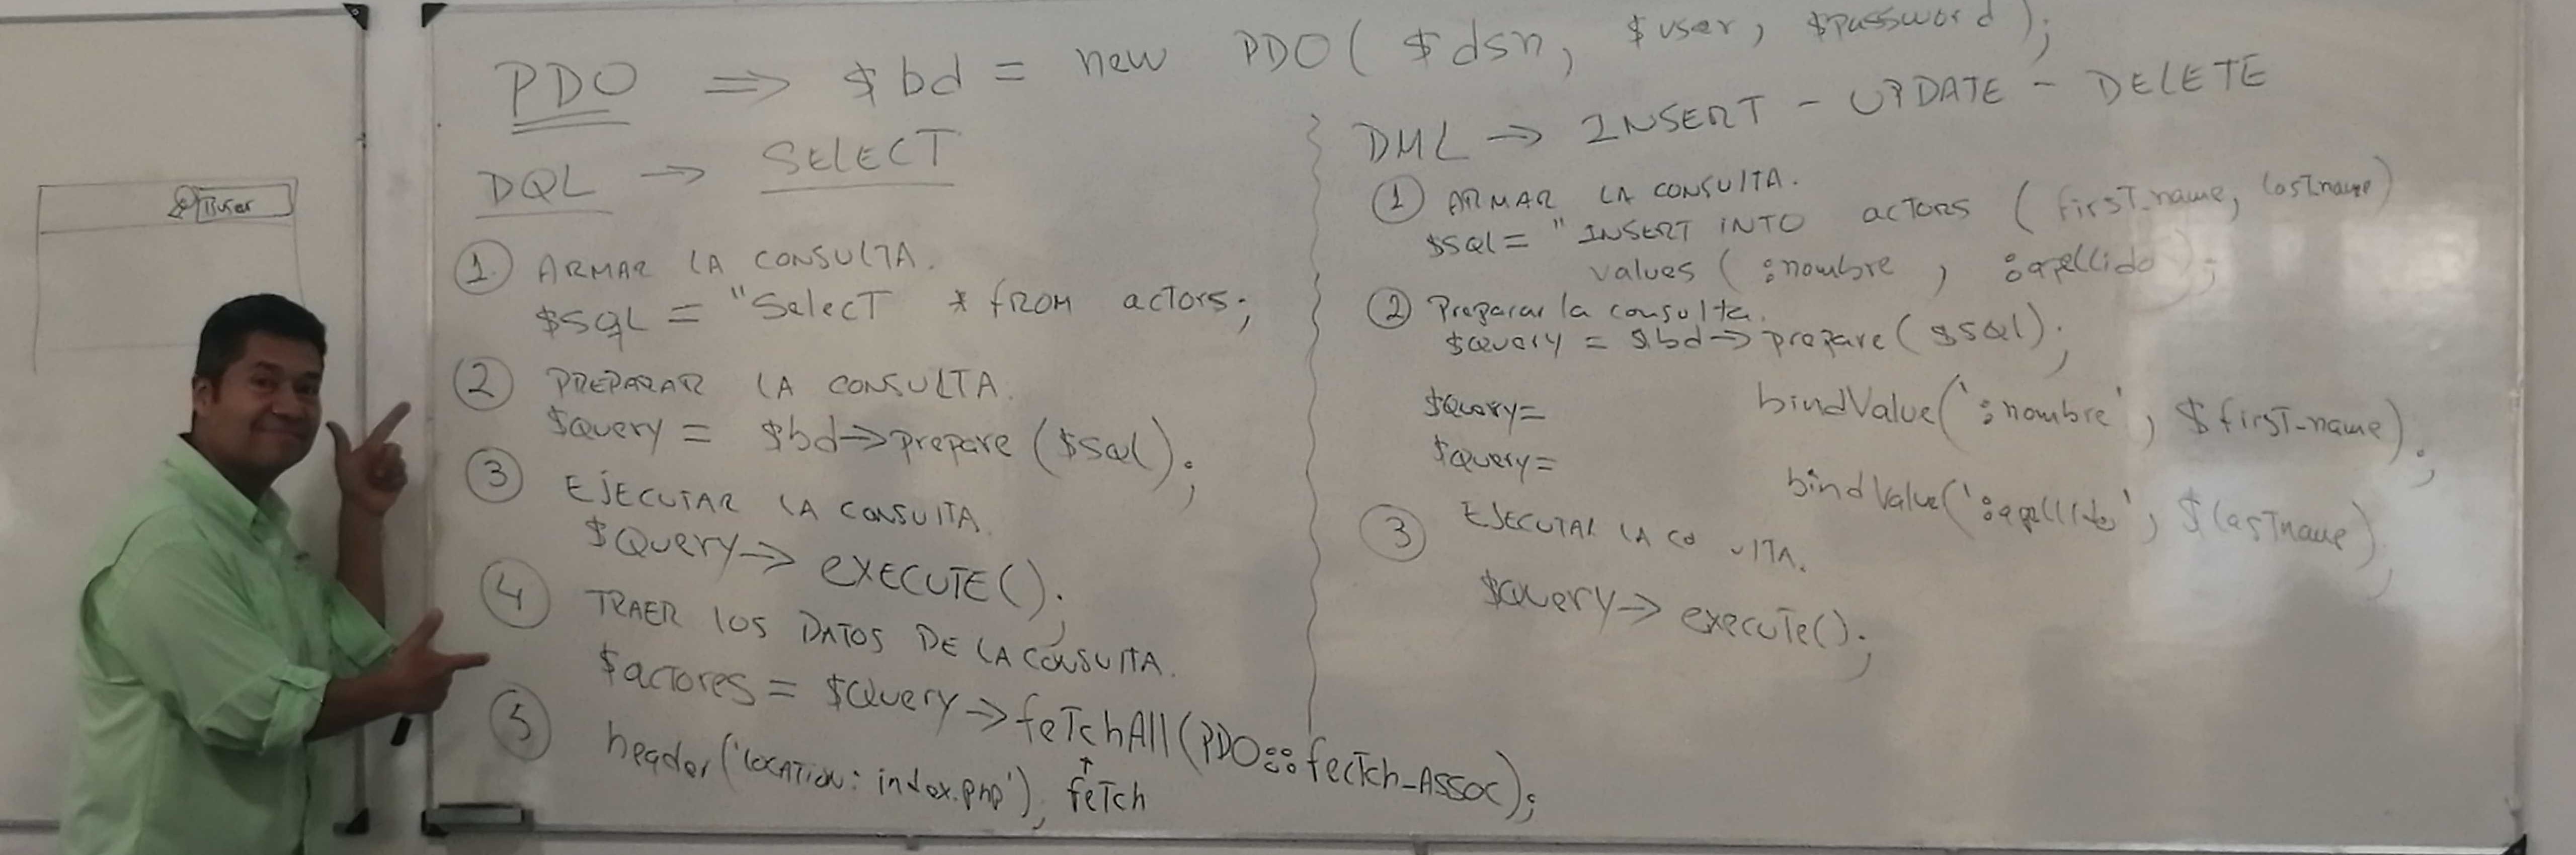 PDO ⇒ $bd = new PDO( $dsn, $user, $password);
DQL → SELECT
① ARMAR LA CONSULTA.
$sql = "Select * FROM actors;
② PREPARAR LA CONSULTA.
$query = $bd→prepare($sql);
③ EJECUTAR LA CONSULTA.
$Query→ EXECUTE();
④ TRAER LOS DATOS DE LA CONSULTA.
$actores = $Query→fetchAll(PDO::fectch_Assoc);
fetch
⑤ header('LOCATION: index.php');
DML → INSERT - UPDATE - DELETE
① ARMAR LA CONSULTA.
$sql = "INSERT INTO actors (first_name, lastname)
values ( :nombre , :apellido);
② Preparar la consulta.
$query = $bd→prepare($sql);
$Query= bindValue(':nombre', $first_name);
$Query= bindValue(':apellido', $lastname);
③ EJECUTAR LA CO ULTA.
$Query→ execute();
user